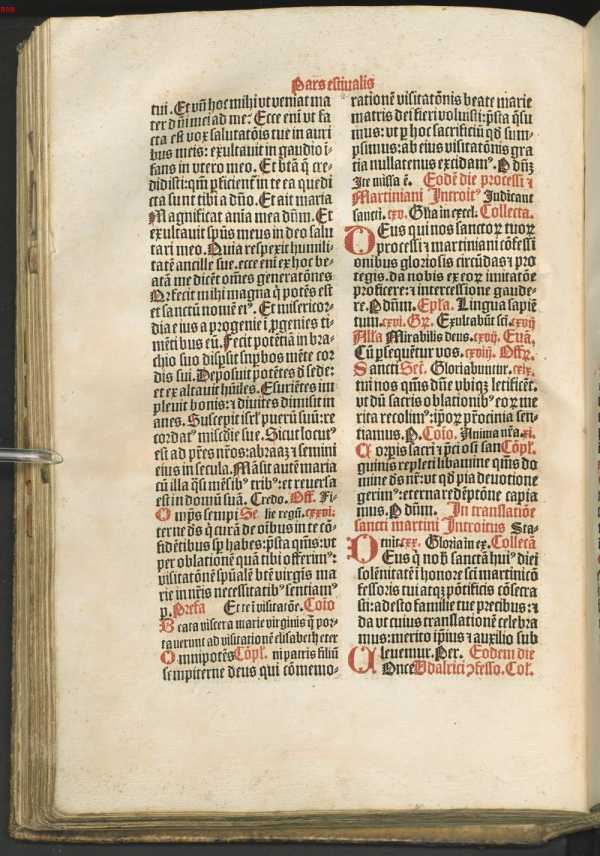 Pars estiualis
tui. Et vñ hoc mihi vt veniat ma
ter dñi mei ad me. Ecce eni vt fa
cta est vox salutatõis tue in auri
bus meis: exultauit in gaudio ĩ-
fans in vtero meo. Et btã q̃ cre-
didisti: qm̃ pficient in te ea que di
cta sunt tibi a dño. Et ait maria
Magnificat anĩa mea dñm. Et
exultauit spũs meus in deo salu
tari meo. Quia respexit humili-
tatẽ ancille sue. ecce eni ex hoc be-
atã me dicẽt om̃es generatõnes
Q₂ fecit mihi magna q̃ potẽs est
et sanctũ nomẽ ei⁹. Et misericor-
dia eius a progenie ĩ pgenies ti-
mẽti bus eũ. Fecit potẽtiã in bra-
chio suo dispsit supbos mẽte cor
dis sui. Deposuit potẽtes d̃ sede:
et exaltauit hũiles. Esuriẽtes im
pleuit bonis: et diuites dimisit in
anes. Suscepit isrl' puerũ suũ: re
cordat⁹ miscd̃ie sue. Sicut locut⁹
est ad pr̃es nr̃os: abraaz ⁊ semini
eius in secula. Mãsit autẽ maria
cũ illa q̃si mẽsib⁹ trib⁹: et reuersa
est in domũ suã. Credo. Off. Fi-
Omps sempi Se lie regũ. cxxvi.
terne ds̃ q̃ curã de oĩbus in te cõ-
fidẽtibus sp habes: psta qm̃s: vt
per oblationẽ quã tibi offerim⁹:
visitatõnẽ spũalẽ btẽ virgĩs ma
rie in nr̃is necessitatib⁹ sentiam⁹
p. Prefa Et te ĩ visitatõe. Cõio
Beata viscera marie virginis q̃ por-
tauerunt ad visitationẽ elisabeth eter
Omnipotẽs Cõpl. ni patris filiũ
sempiterne deus qui cõmemo-
rationẽ visitatõnis beate marie
matris dei fieri voluisti: psta q̃su
mus: vt p hoc sacrificiũ qd̃ sum-
psimus: ab eius visitatõnis gra
tia nullatenus excidam⁹. P dñ₃
Ite missa ẽ. Eodẽ die processi ⁊
Martiniani Introit⁹ Iudicant
sancti. cxv. Glĩa in excel. Collecta.
DEus qui nos sancto₂ tuo₂
processi ⁊ martiniani cõfessi
onibus gloriosis circũdas ⁊ pro
tegis. da nobis ex eo₂ imitatõe
proficere: ⁊ intercessione gaude-
re. P dñm. Epl̃a. Lingua sapiẽ
tum. cxvi. Gr̃. Exultabũt sci. cxvij
All̃a Mirabilis deus. cxvij. Euã.
Cũ psequẽtur vos. cxviij. Offr̃.
Sancti Sec̃. Gloriabuntur. cxix.
tui nos qm̃s dñe vbiq₃ letificẽt.
vt dũ sacris oblationib⁹ eo₂ me
rita recolim⁹: ip̃o₂ pr̃ocinia sen-
tiamus. P. Cõio. Anima nr̃a. xi.
Corpis sacri ⁊ p̃ciosi san Cõpl̃.
guinis repleti libamine qm̃s do
mine ds̃ nr̃: vt qd̃ pia deuotione
gerim⁹: eterna redẽptõne capia
mus. P dñm. In translatiõe
sancti martini Introitus Sta-
tuit. cxx. Gloria in ex. Collectã
DEus q̃ nob̃ sanctã hui⁹ diei
solẽnitatẽ ĩ honore sci martini cõ
fessoris tui atq₃ põtificis cõsecra
sti: adesto familie tue precibus: ⁊
da vt cuius translationẽ celebra
mus: merito ip̃ius ⁊ auxilio sub
leuemur. Per. Eodem die
ConceUdalrici ɔfesso. Col̃.